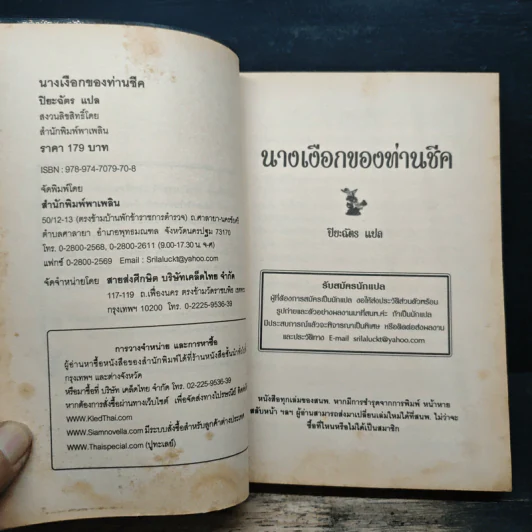 นางเงือกของท่านชีค
ปิยะฉัตร แปล
สงวนลิขสิทธิ์โดย
สำนักพิมพ์พาเพลิน
ราคา 179 บาท
ISBN : 978-974-7079-70-8
จัดพิมพ์โดย
สำนักพิมพ์พาเพลิน
50/12-13 (ตรงข้ามบ้านพักข้าราชการตำรวจ) ถ.ศาลายา-นครชัยศรี
ตำบลศาลายา อำเภอพุทธมณฑล จังหวัดนครปฐม 73170
โทร. 0-2800-2568, 0-2800-2611 (9.00-17.30 น. จ-ศ)
แฟกซ์ 0-2800-2569 Email : Srilaluckt@yahoo.com
จัดจำหน่ายโดย สายส่งศึกษิต บริษัทเคล็ดไทย จำกัด
117-119 ถ.เฟื่องนคร ตรงข้ามวัดราชบพิธ
กรุงเทพฯ 10200 โทร. 0-2225-9536-39
การวางจำหน่าย และการหาซื้อ
ผู้อ่านหาซื้อหนังสือของสำนักพิมพ์ได้ที่ร้านหนังสือชั้นนำทั่วไป
กรุงเทพฯ และต่างจังหวัด
หรือมาซื้อที่ บริษัท เคล็ดไทย จำกัด โทร. 02-225-9536-39
หากต้องการสั่งซื้อผ่านทางเว็บไซต์ เพื่อจัดส่งทางไปรษณีย์
www.KledThai.com
www.Siamnovella.com มีระบบสั่งซื้อสำหรับลูกค้าต่างประเทศ
www.Thaispecial.com (ปูทะเลย์)
นางเงือกของท่านชีค
ปิยะฉัตร แปล
รับสมัครนักแปล
ผู้ที่ต้องการสมัครเป็นนักแปล ขอให้ส่งประวัติส่วนตัวพร้อม
รูปถ่ายและตัวอย่างผลงานมาที่สนพ.ค่ะ ถ้าเป็นนักแปล
มีประสบการณ์แล้วจะพิจารณาเป็นพิเศษ หรือติดต่อส่งผลงาน
และประวัติทาง E-mail srilaluckt@yahoo.com
หนังสือทุกเล่มของสนพ. หากมีการชำรุดจากการพิมพ์ หน้าหาย
สลับหน้า ฯลฯ ผู้อ่านสามารถส่งมาเปลี่ยนเล่มใหม่ได้ที่สนพ. ไม่ว่าจะ
ซื้อที่ไหนหรือไม่ได้เป็นสมาชิก